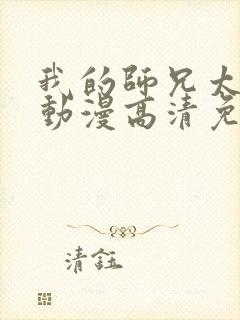 我的師兄太
動漫高清免
清鈺